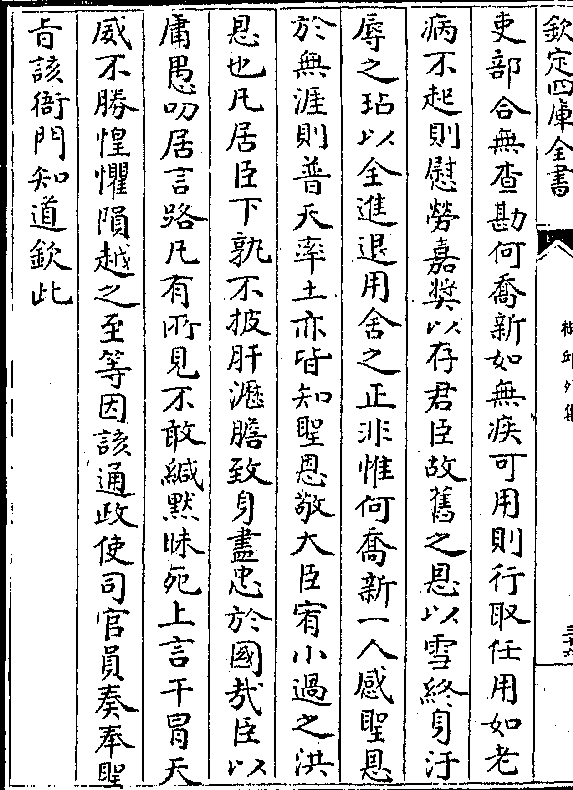 欽定四庫全書
椒邱外集
三十六
吏部合無查勘何喬新如無疾可用則行取任用如老
病不起則慰勞嘉奬以存君臣故舊之恩以雪終身汙
辱之玷以全進退用舍之正非惟何喬新一人感聖恩
於無涯則普天率土亦皆知聖恩敬大臣宥小過之洪
恩也凡居臣下孰不披肝瀝膽致身盡忠於國哉臣以
庸愚叨居言路凡有所見不敢緘默昧死上言干冒天
威不勝惶懼隕越之至等因該通政使司官員奏奉聖
旨該衙門知道欽此